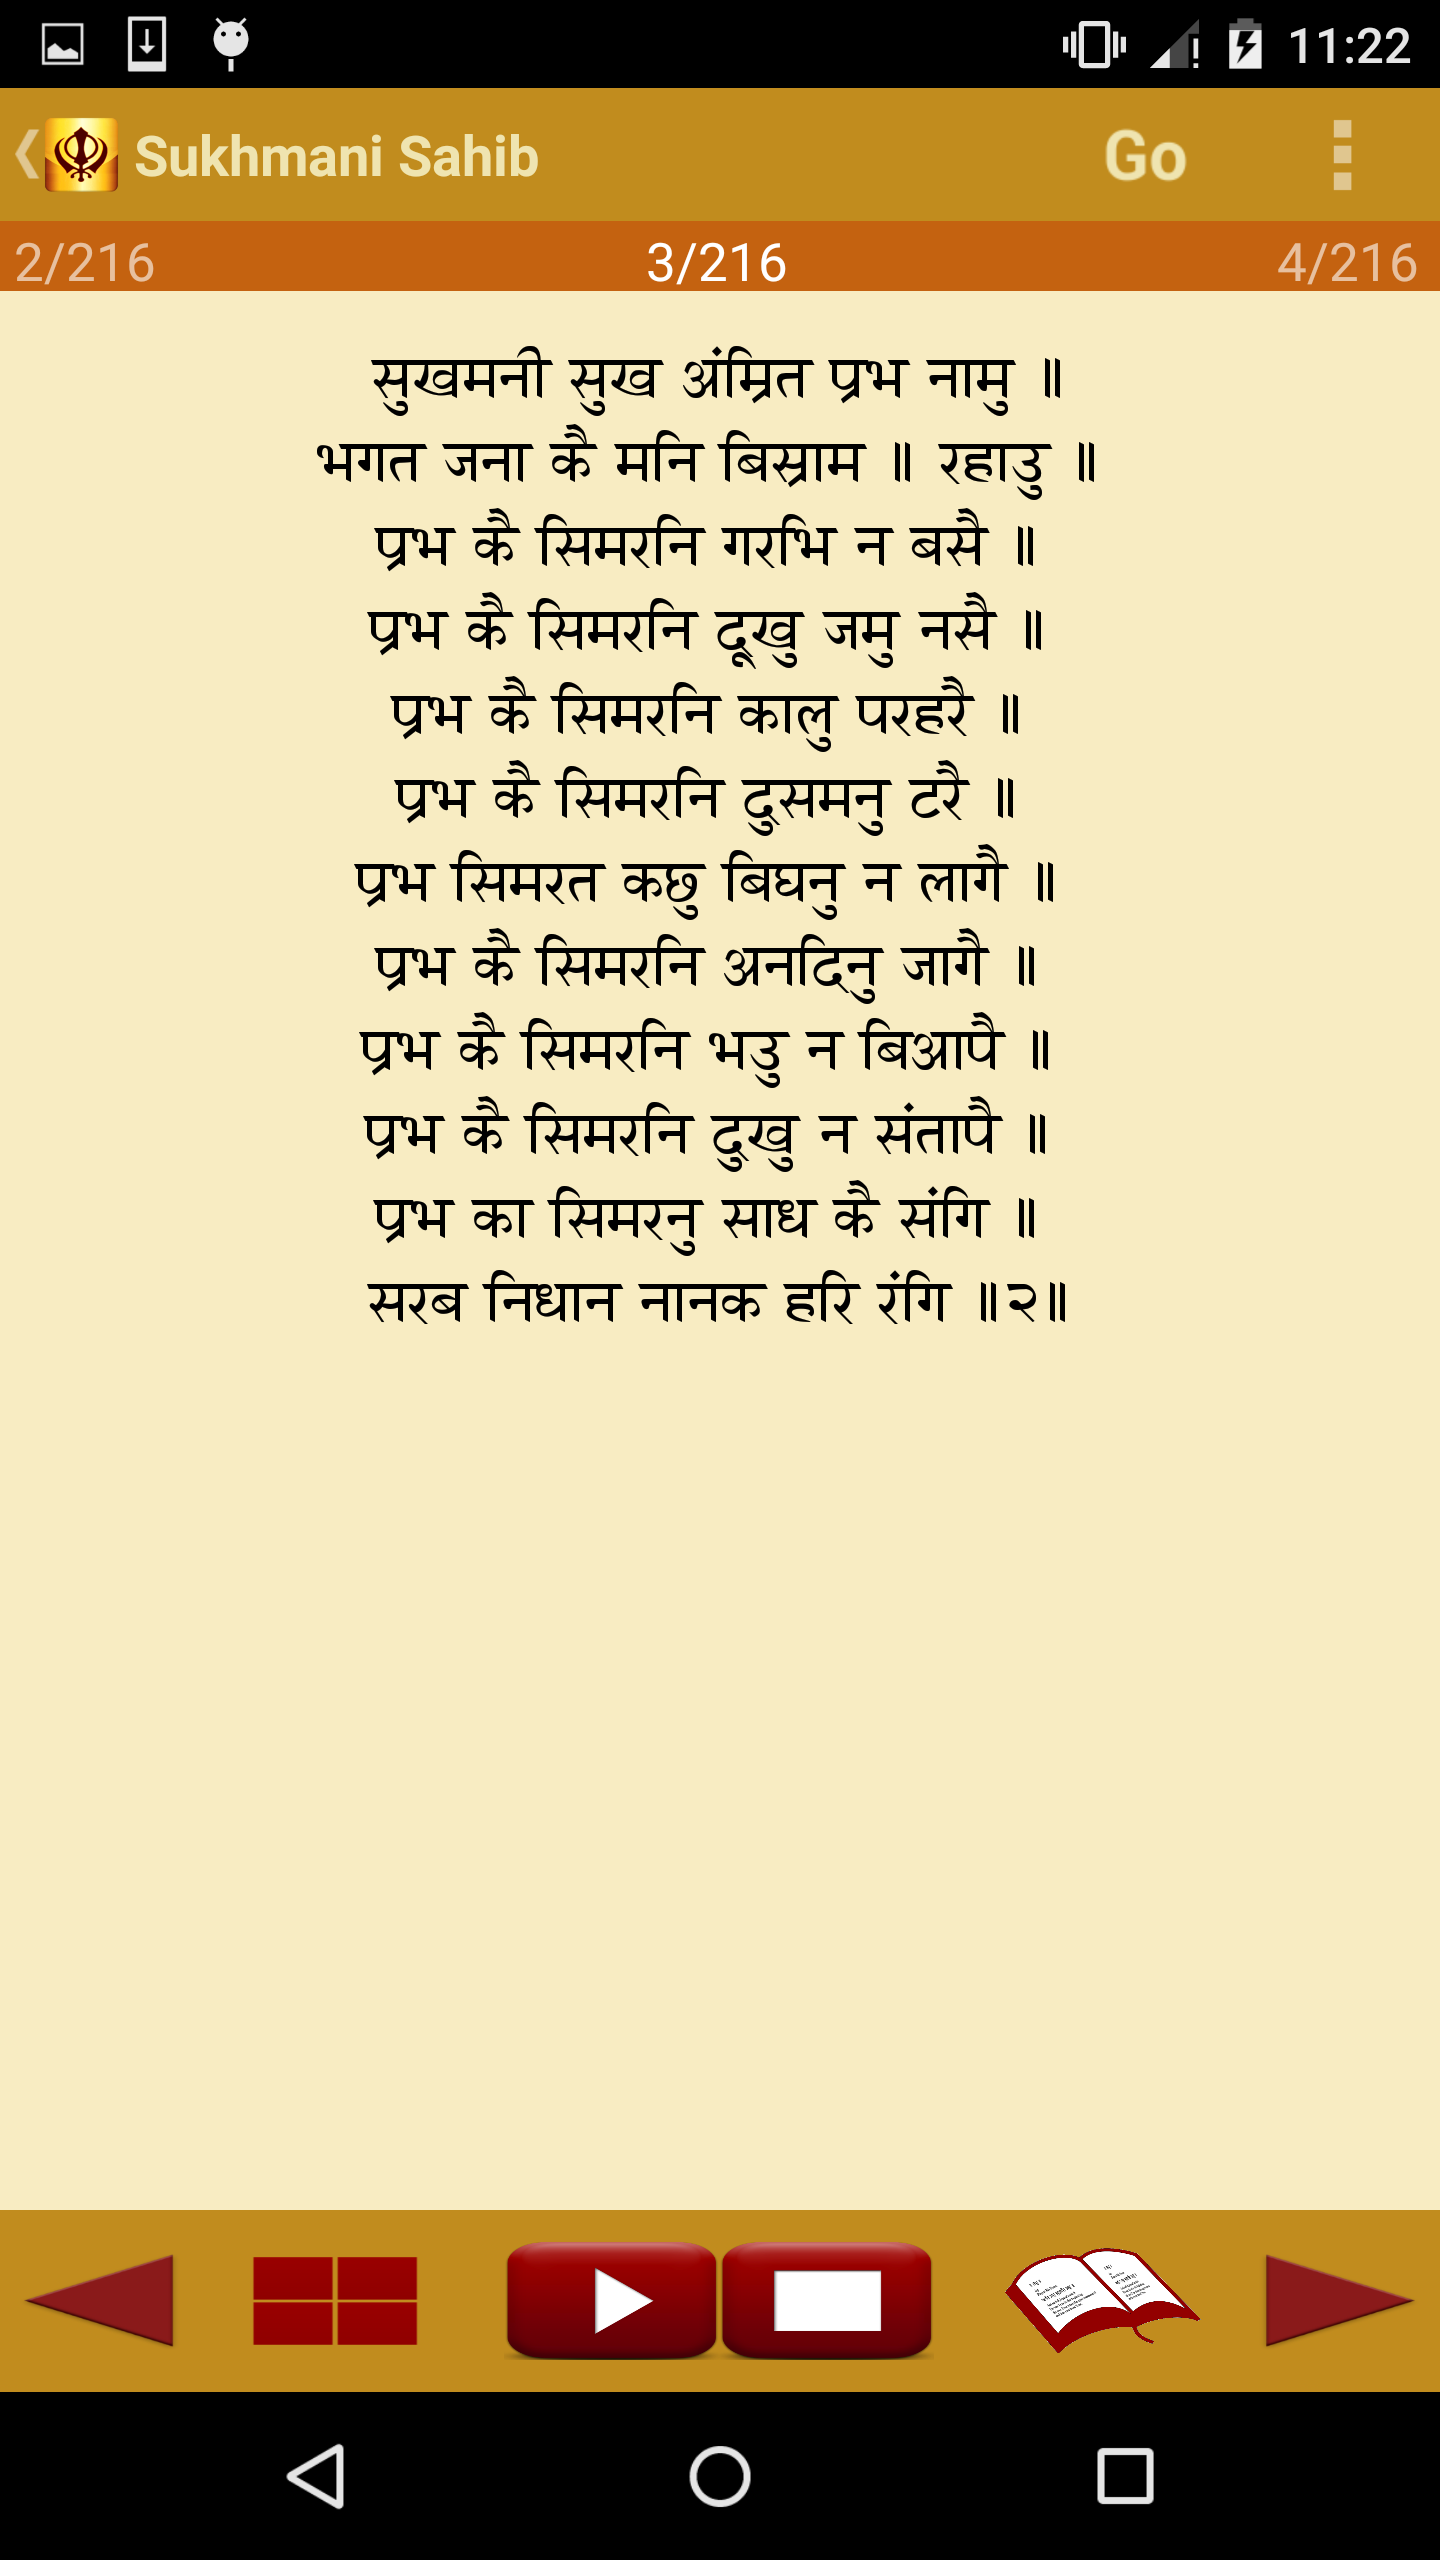 11:22
Sukhmani Sahib Go
2/216 3/216 4/216
सुखमनी सुख अंम्रित प्रभ नामु ॥
भगत जना कै मनि बिस्राम ॥ रहाउ ॥
प्रभ कै सिमरनि गरभि न बसै ॥
प्रभ कै सिमरनि दूखु जमु नसै ॥
प्रभ कै सिमरनि कालु परहरै ॥
प्रभ कै सिमरनि दुसमनु टरै ॥
प्रभ सिमरत कछु बिघनु न लागै ॥
प्रभ कै सिमरनि अनदिनु जागै ॥
प्रभ कै सिमरनि भउ न बिआपै ॥
प्रभ कै सिमरनि दुखु न संतापै ॥
प्रभ का सिमरनु साध कै संगि ॥
सरब निधान नानक हरि रंगि ॥२॥